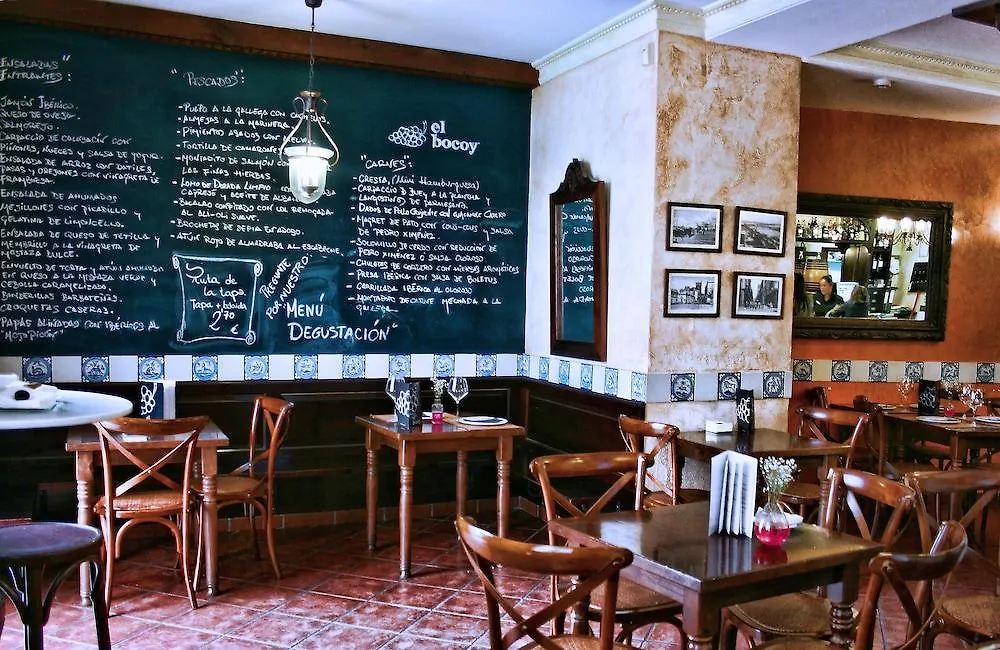 ENSALADAS"
ENTRANTES:
JAMÓN IBÉRICO.
QUESO DE OVEJA.
SALMOREJO.
CARPACCIO DE CALABACÍN CON
PIÑONES, NUECES Y SALSA DE YOGUR.
ENSALADA DE ARROS CON DÁTILES,
PASAS Y OREJONES CON VINAGRETA DE
FRAMBUESA.
ENSALADA DE AHUMADOS
MEJILLONES CON PICADILLO Y
GELATINA DE LIMONCELLO.
ENSALADA DE QUESO DE TETILLA Y
MEMBRILLO A LA VINAGRETA DE
MOSTAZA DULCE.
ENVUELTO DE TORTA Y ATÚN AHUMADO
EN QUESO A LA MOSTAZA VERDE Y
CEBOLLA CARAMELIZADA.
BANDERILLAS BARBATEÑAS.
CROQUETAS CASERAS.
PAPAS ALIÑADAS CON IBÉRICOS AL
"MOJO PICÓN"
"PESCADOS":
- PULPO A LA GALLEGA CON CACHELOS.
- ALMEJAS A LA MARINERA
- PIMIENTO ASADOS CON MELVA
- TORTILLA DE CAMARONES
- MONTADITO DE SALMÓN CON
LAS FINAS HIERBAS.
- LOMO DE DORADA LIMPIO
CAPRESE Y ACEITE DE ALBAHACA
- BACALAO CONFITADO CON COL REHOGADA
AL ALI-OLI SUAVE.
- BROCHETA DE SEPIA EN ADOBO.
- ATÚN ROJO DE ALMADRABA AL ESCABECHE
Ruta de
la tapa
TAPA + bebida
2'70 €
PREGUNTE
POR NUESTRO
"MENÚ
DEGUSTACIÓN"
el
bocoy
"CARNES":
- CRESTA, (Mini Hamburguesa)
- CARPACCIO D BUEY A LA PLANCHA Y
LANGOSTINO DE PARMESANO.
- DADOS DE POLLO CRUJIENTE CON
- MAGRET DE PATO CON COUS-COUS Y SALSA
DE PEDRO XIMÉNEZ.
- SOLOMILLO DE CERDO CON REDUCCIÓN DE
PEDRO XIMÉNEZ O SALSA OLOROSO
- CHULETAS DE CORDERO CON HIERBAS AROMÁTICAS
- PRESA IBÉRICA CON SALSA DE BOLETUS
- CARRILLADA IBÉRICA AL OLOROSO
- MONTADITO DE CARNE MECHADA A LA